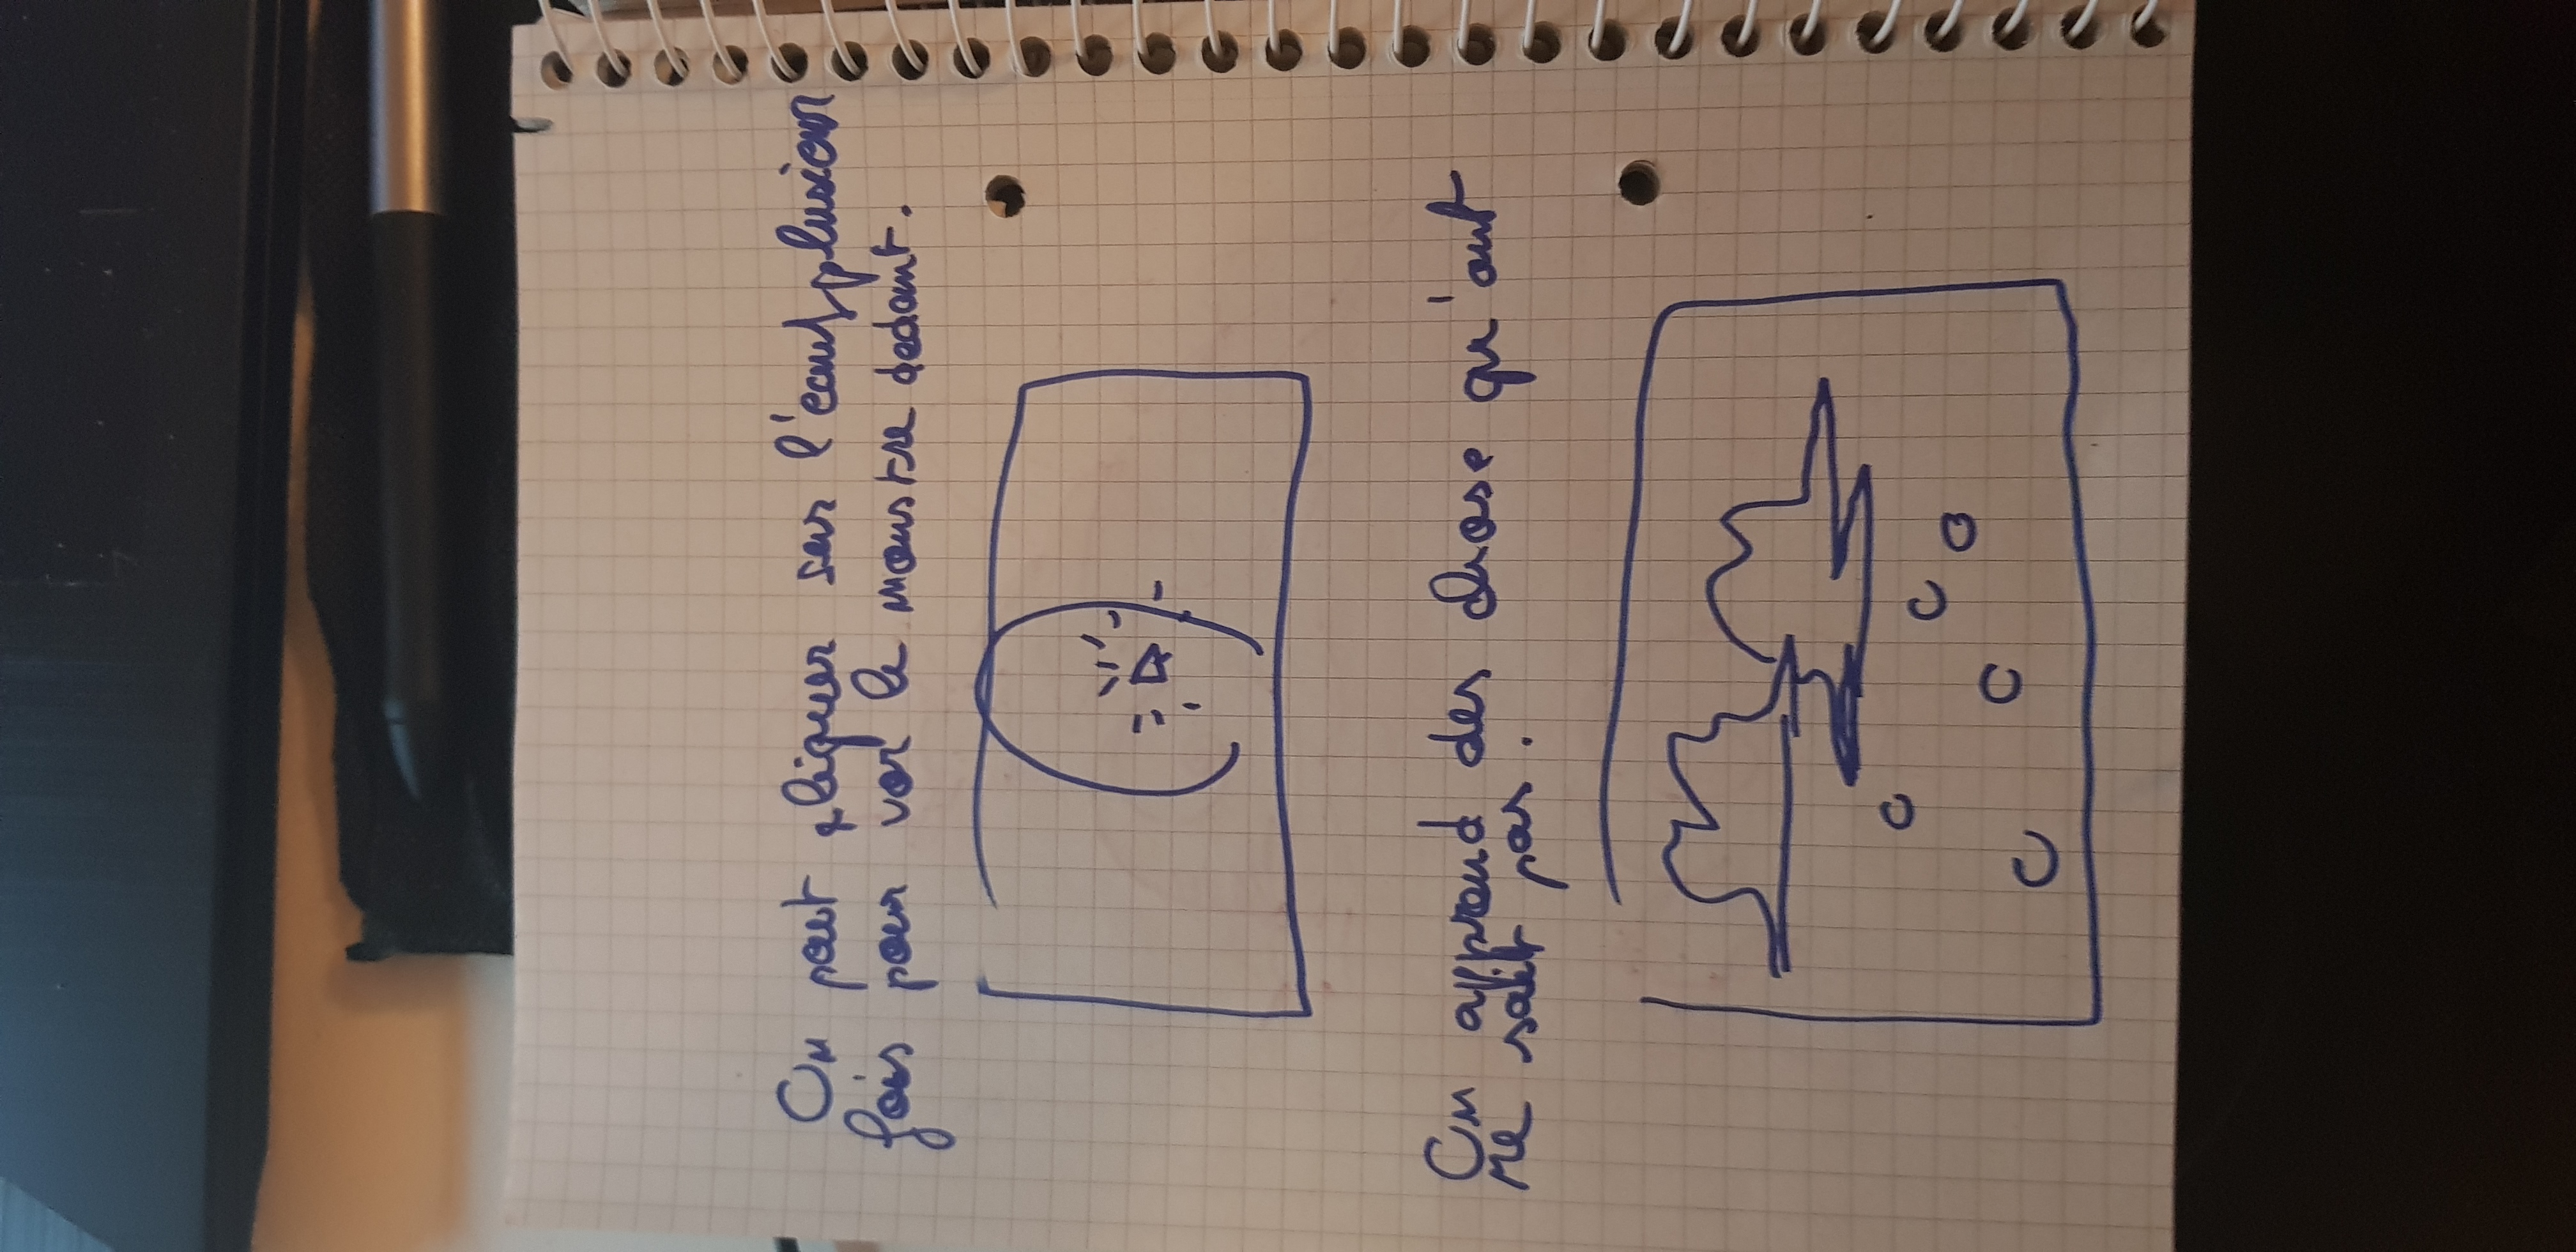 On peut cliquer sur l'oeuf plusieur
fois pour voir le monstre dedant.
On apprend des chose qu'ont
ne sait pas.